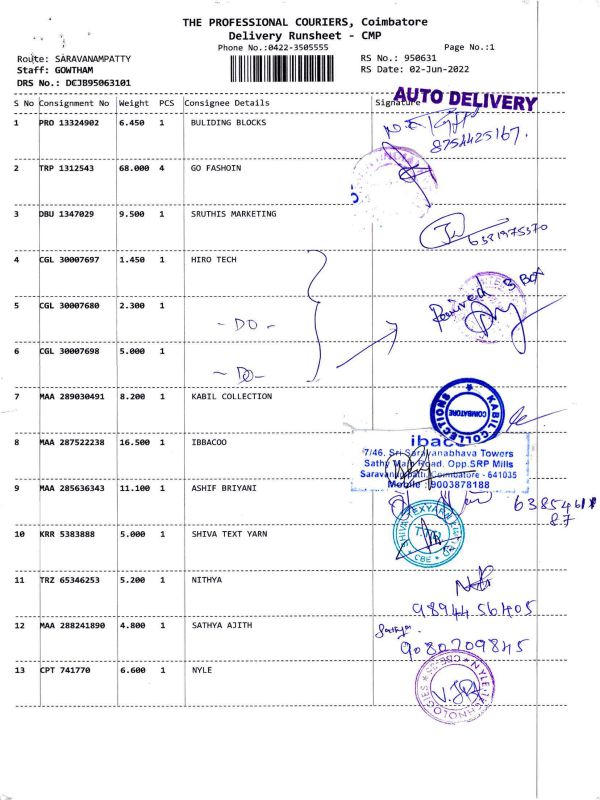 THE PROFESSIONAL COURIERS, Coimbatore
Delivery Runsheet - CMP
Phone No.:0422-3505555 Page No.:1
Route: SARAVANAMPATTY RS No.: 950631
Staff: GOWTHAM RS Date: 02-Jun-2022
DRS No.: DCJB95063101
AUTO DELIVERY
S No Consignment No Weight PCS Consignee Details Signature
1 PRO 13324902 6.450 1 BULIDING BLOCKS
8754425167.
2 TRP 1312543 68.000 4 GO FASHOIN
3 DBU 1347029 9.500 1 SRUTHIS MARKETING
6381975370
4 CGL 30007697 1.450 1 HIRO TECH
Received 3 BOX
5 CGL 30007680 2.300 1
- DO -
6 CGL 30007698 5.000 1
- DO -
7 MAA 289030491 8.200 1 KABIL COLLECTION
KABIL COLLECTIONS
COIMBATORE
8 MAA 287522238 16.500 1 IBBACOO
7/46, Sri Saravanabhava Towers
Sathy Main Road, Opp.SRP Mills
Saravanampatti, Coimbatore - 641035
Mobile : 9003878188
9 MAA 285636343 11.100 1 ASHIF BRIYANI
10 KRR 5383888 5.000 1 SHIVA TEXT YARN
SHIVA TEXYARN
CBE
11 TRZ 65346253 5.200 1 NITHYA
9894456405
12 MAA 288241890 4.800 1 SATHYA AJITH
Sathya
9080209845
13 CPT 741770 6.600 1 NYLE
NYLE TECHNOLOGIES